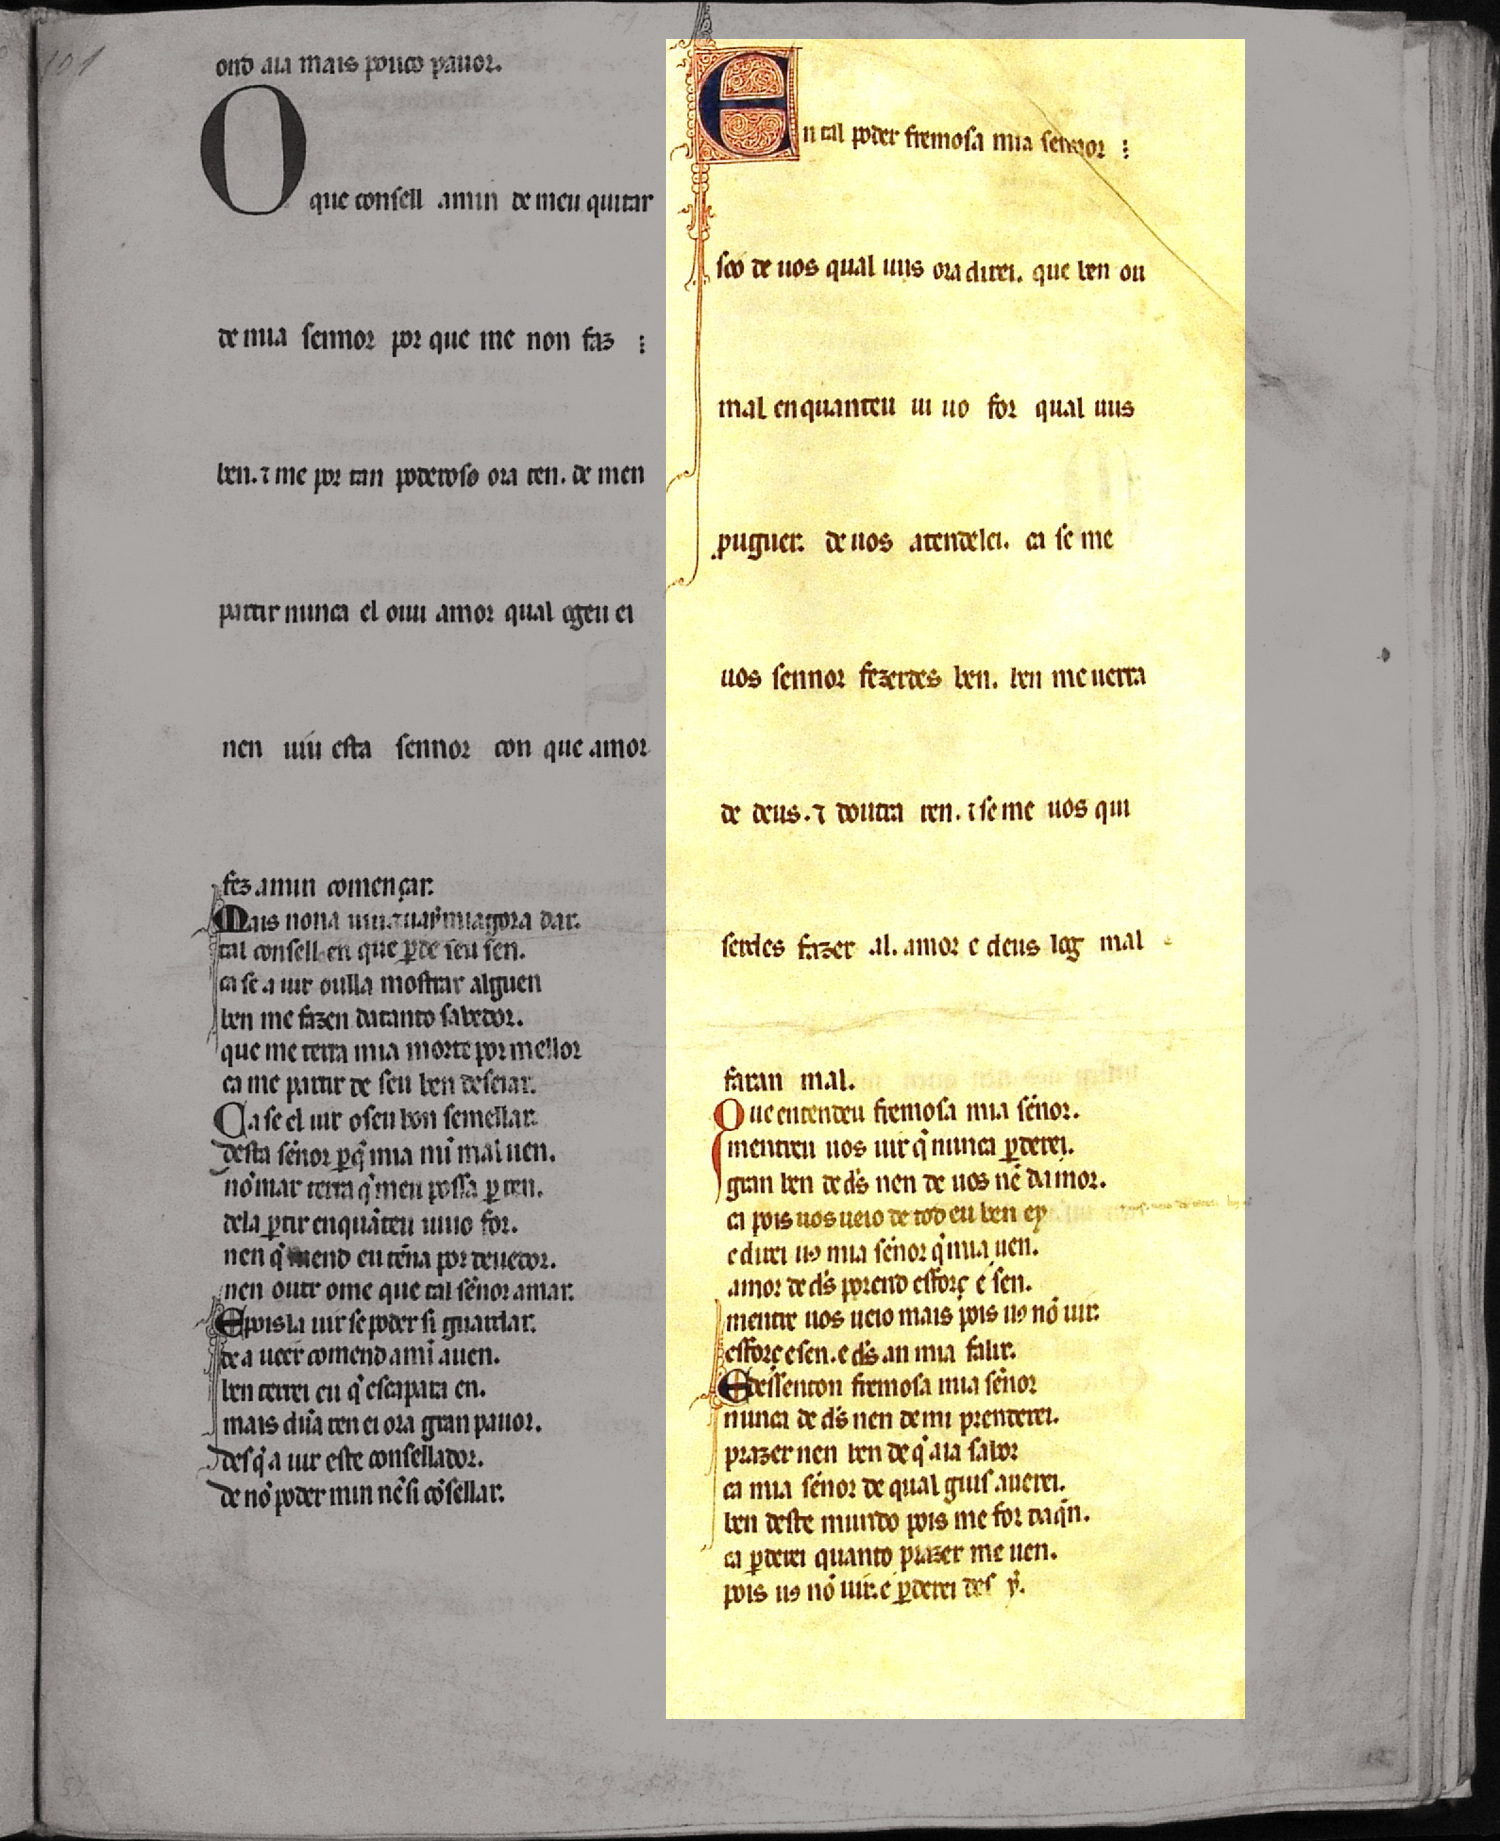 outro aia mais pouco pauor.
O que consell amin de meu quitar
de mia sennor por que me non faz
ben. ⁊ me por tan poderoso ora ten. de men
partir nunca el ouu amor qual ogeu ei
nen uiu esta sennor con que amor
fez amin començar.
Mais nona uiu
dar.
tal consell en que ꝑde seu sen.
ca se a uir oulla mostrar alguen
ben me fazen datanto sabedor.
que me terra mia morte por mellor
ca me partir de seu ben deseiar.
Ca se el uir o seu bon semellar.
desta sẽnor ꝑq̃ mia mi mal uen.
nõmar terra q̃ meu possa ꝑ ren.
dela ꝑtir enquãteu uiuo for.
nen q̃ mend eu tẽna por deuedor.
nen outr ome que tal sẽnor amar.
E pois la uir se poder si guardar.
de a ueer comend ami auen.
ben terrei eu q̃ escapara en.
mais dũa ren ei ora gran pauor.
des q̃ a uir este consellador.
de nõ poder min nẽ si cõsellar.
En tal poder fremosa mia sennor
soo de uos qual uus ora direi. que ben ou
mal enquanteu ui uo for qual uus
puguer. de uos atenderei. ca se me
uos sennor fezerdes ben. ben me uerra
de deus. ⁊ doutra ren. ⁊ se me uos qui
serdes fazer al. amor e deus log mal
faran mal.
Que entendeu fremosa mia sẽnor.
mentreu uos uir q̃ nunca ꝑderei.
gran ben de d̃s nen de uos nẽ damor.
ca pois uos ueio de tod eu ben ey
e direi uꝰ mia sẽnor q̃ mia uen.
amor de d̃s prend esforç e sen.
mentre uos ueio mais pois uꝰ nõ uir.
esforç e sen. e d̃s an mia falir.
E dessenton fremosa mia sẽnor
nunca de d̃s nen de mi prenderei.
prazer nen ben de q̃ aia sabor
ca mia sẽnor de qual guis auerei.
ben deste mundo pois me for daq̃n.
ca ꝑderei quanto prazer me uen.
pois uꝰ nõ uir. e ꝑderei des y.